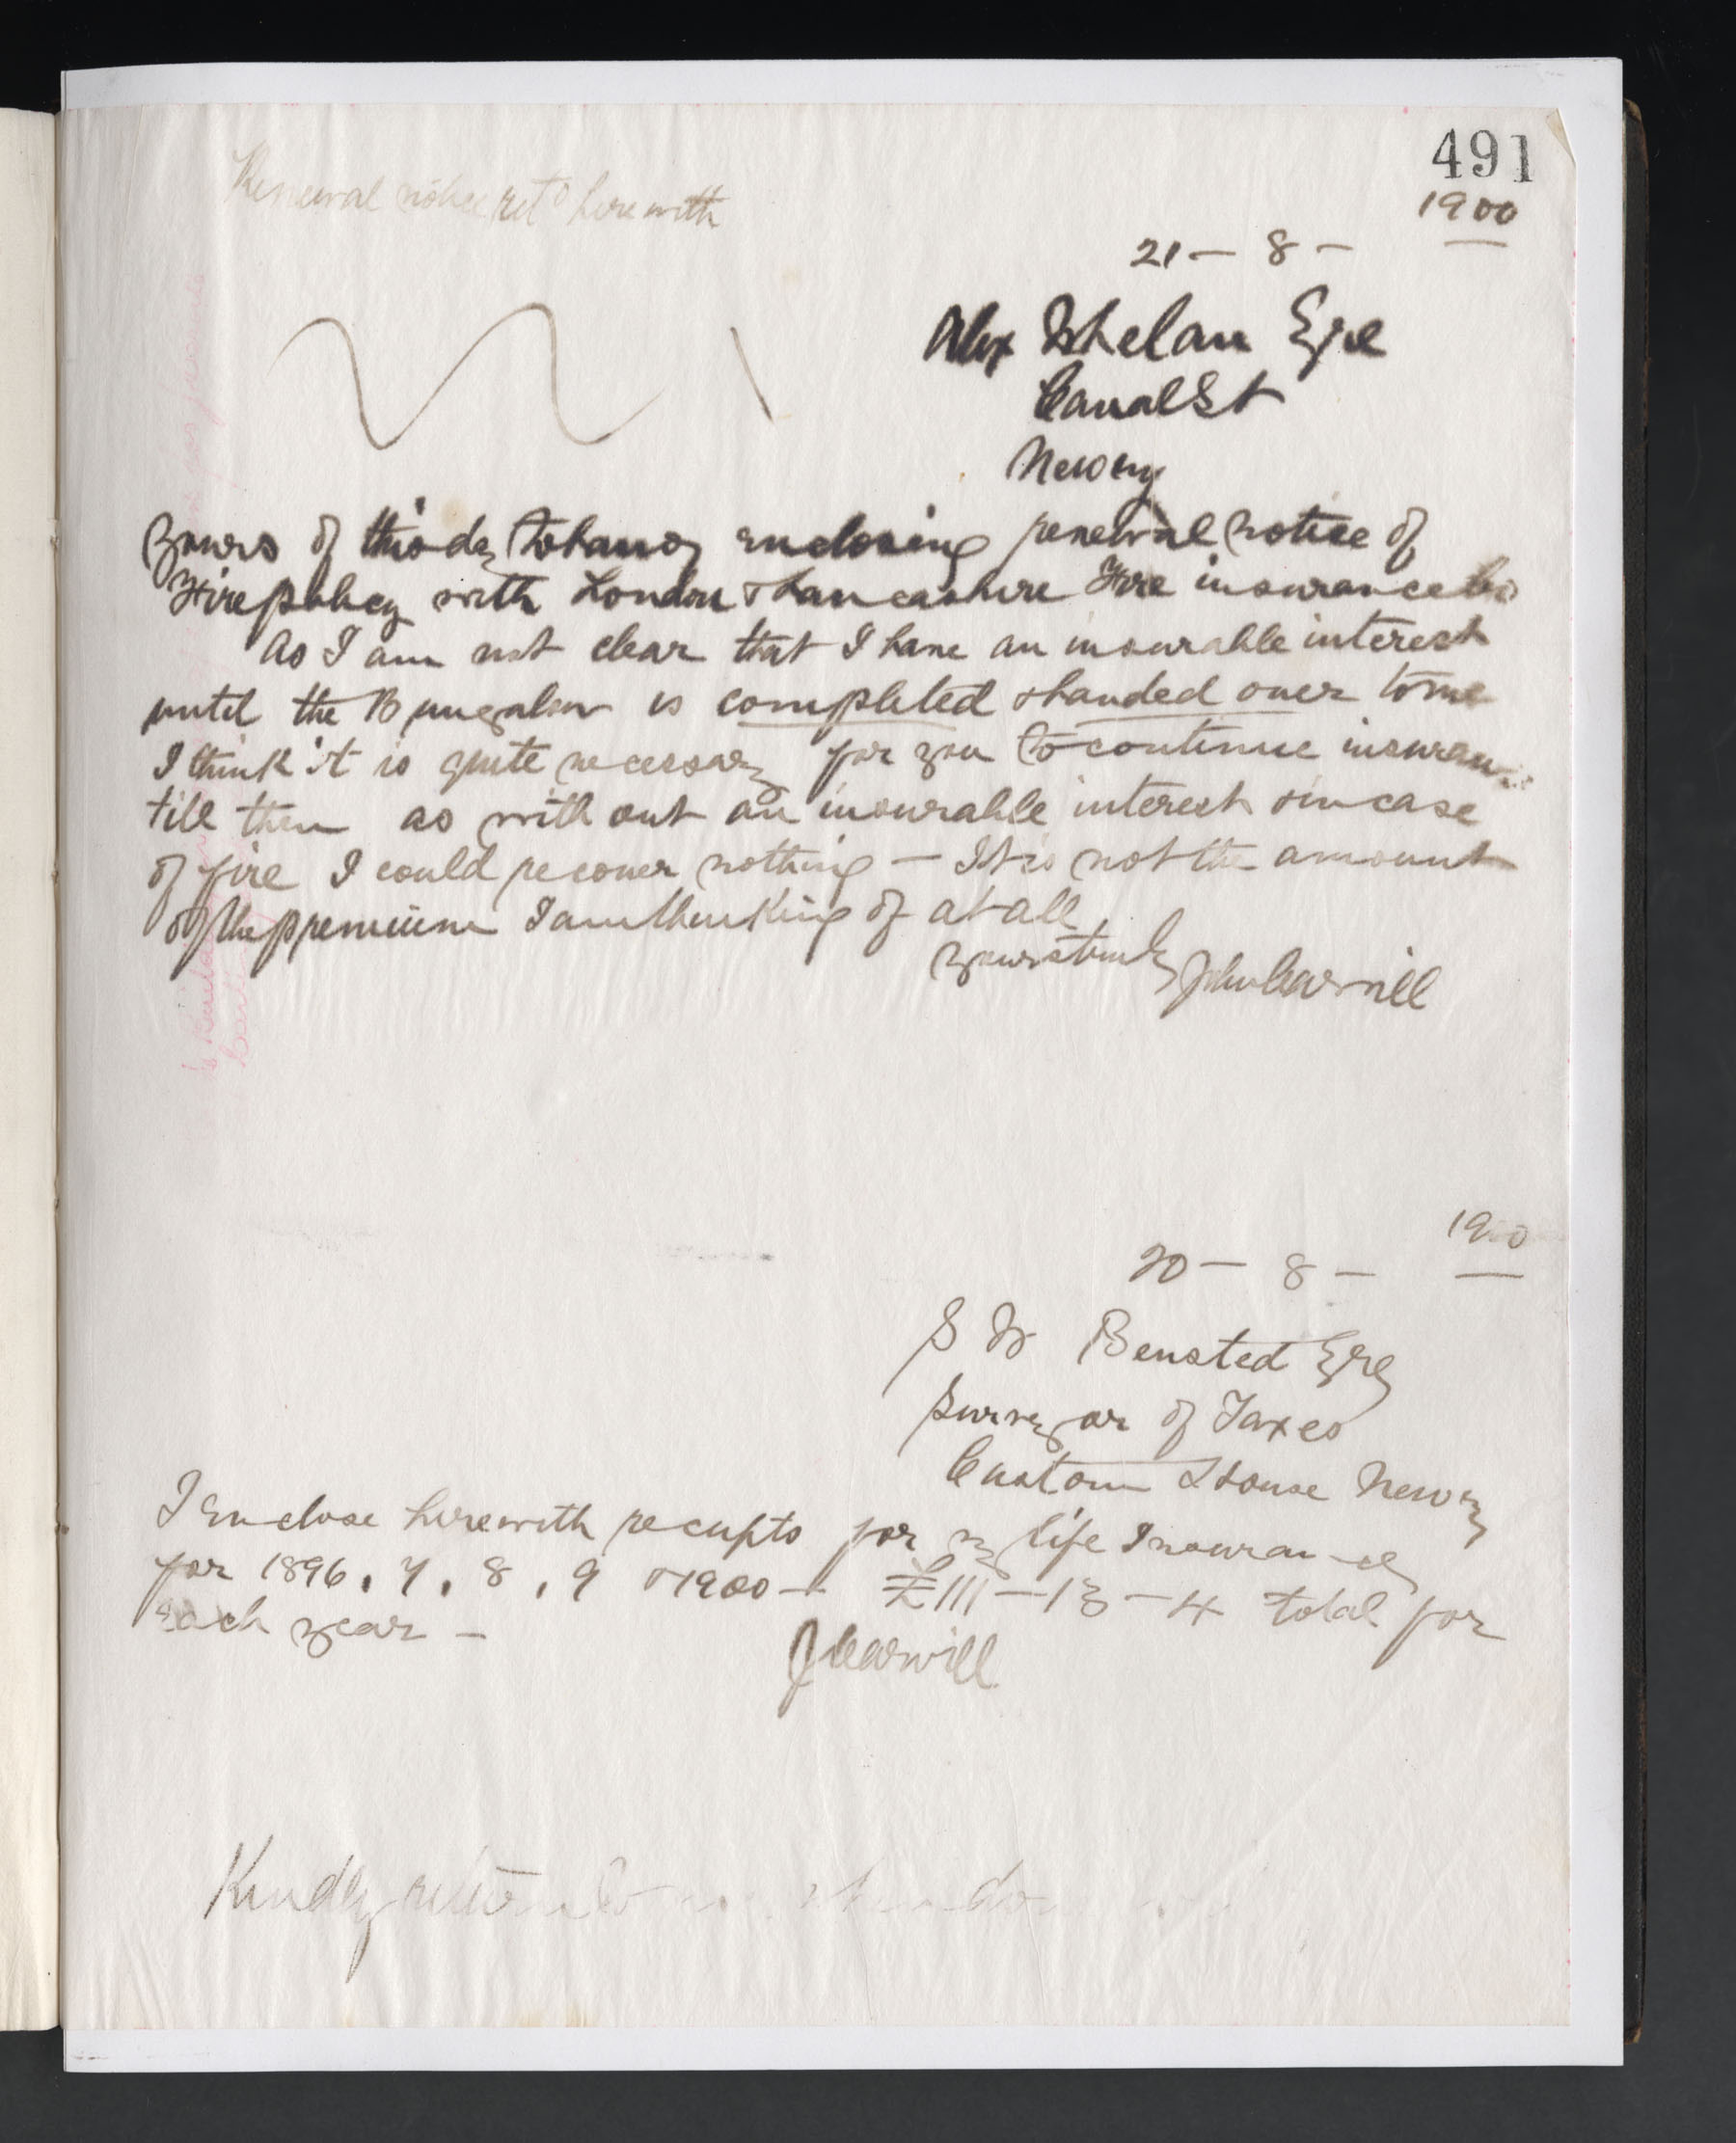 491
Renewal notice retd herewith
1900
21 - 8 -
Alex Whelan Esqe
Canal St
Newry
Yours of this day to hand enclosing renewal notice of
Fire policy with London & Lancashire Fire insurance Co
As I am not clear that I have an insurable interest
until the Bungalow is completed & handed over to me
I think it is quite necessary for you to continue insurance
till then as without an insurable interest & in case
of fire I could recover nothing - It is not the amount
of the premium I am thinking of at all
Yours truly John Carvill
1900
20 - 8 -
S W Bensted Esq
Surveyor of Taxes
Custom House Newry
I Enclose herewith receipts for my life Insurance
for 1896, 7, 8, 9 & 1900 - £111 - 13 - 4 total for
each year -
J Carvill
Kindly return to